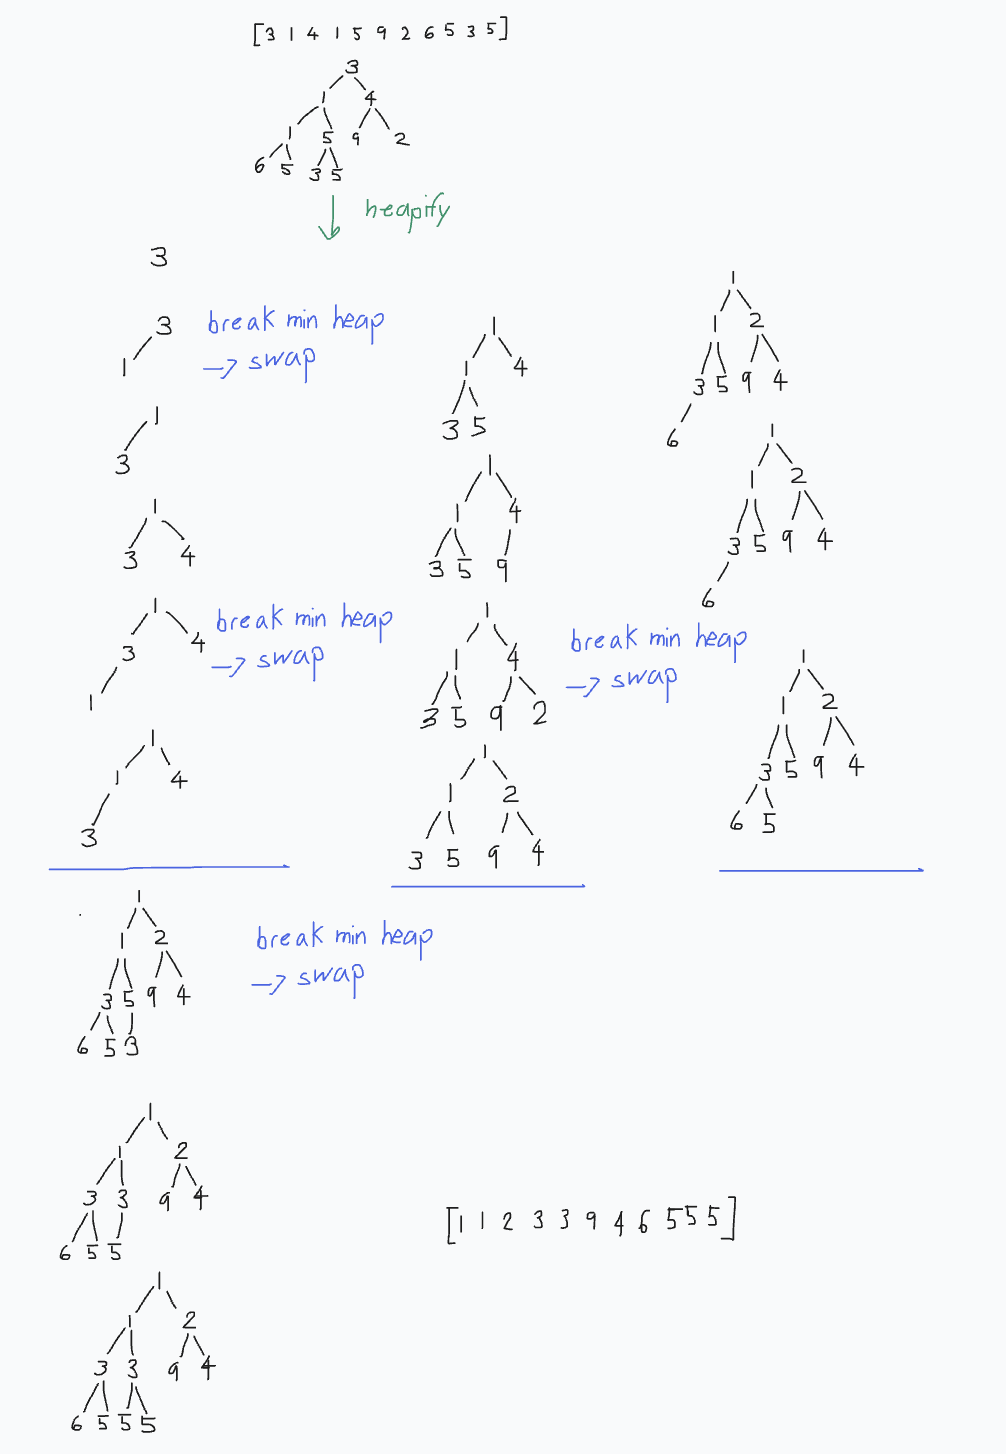 [3 1 4 1 5 9 2 6 5 3 5]
3
1 4
1 5 9 2
6 5 3 5
heapify
3
3
1
break min heap
→ swap
1
3
1
3 4
1
3 4
1
break min heap
→ swap
1
1 4
3
1
1 4
3 5
1
1 4
3 5 9
1
1 4
3 5 9 2
break min heap
→ swap
1
1 2
3 5 9 4
1
1 2
3 5 9 4
6
1
1 2
3 5 9 4
6
1
1 2
3 5 9 4
6 5
1
1 2
3 5 9 4
6 5 3
break min heap
→ swap
1
1 2
3 3 9 4
6 5 5
1
1 2
3 3 9 4
6 5 5 5
[1 1 2 3 3 9 4 6 5 5 5]